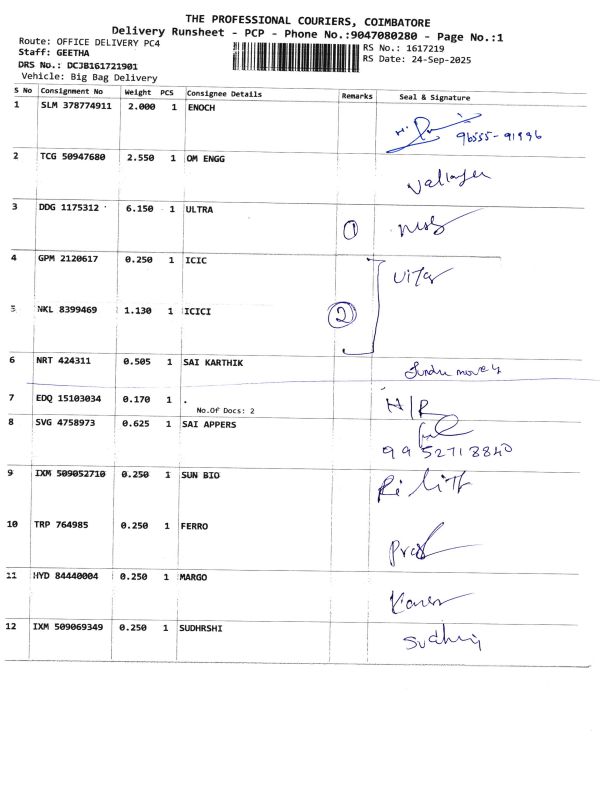 THE PROFESSIONAL COURIERS, COIMBATORE
Delivery Runsheet - PCP - Phone No.:9047080280 - Page No.:1
Route: OFFICE DELIVERY PC4
Staff: GEETHA
DRS No.: DCJB161721901
Vehicle: Big Bag Delivery
RS No.: 1617219
RS Date: 24-Sep-2025
S No Consignment No Weight PCS Consignee Details Remarks Seal & Signature
1 SLM 378774911 2.000 1 ENOCH
96555-91996
2 TCG 50947680 2.550 1 OM ENGG
3 DDG 1175312 6.150 1 ULTRA
1
4 GPM 2120617 0.250 1 ICIC
5 NKL 8399469 1.130 1 ICICI
2
6 NRT 424311 0.505 1 SAI KARTHIK
7 EDQ 15103034 0.170 1 .
No.Of Docs: 2
H/R
8 SVG 4758973 0.625 1 SAI APPERS
9952718840
9 IXM 509052710 0.250 1 SUN BIO
10 TRP 764985 0.250 1 FERRO
11 HYD 84440004 0.250 1 MARGO
12 IXM 509069349 0.250 1 SUDHRSHI